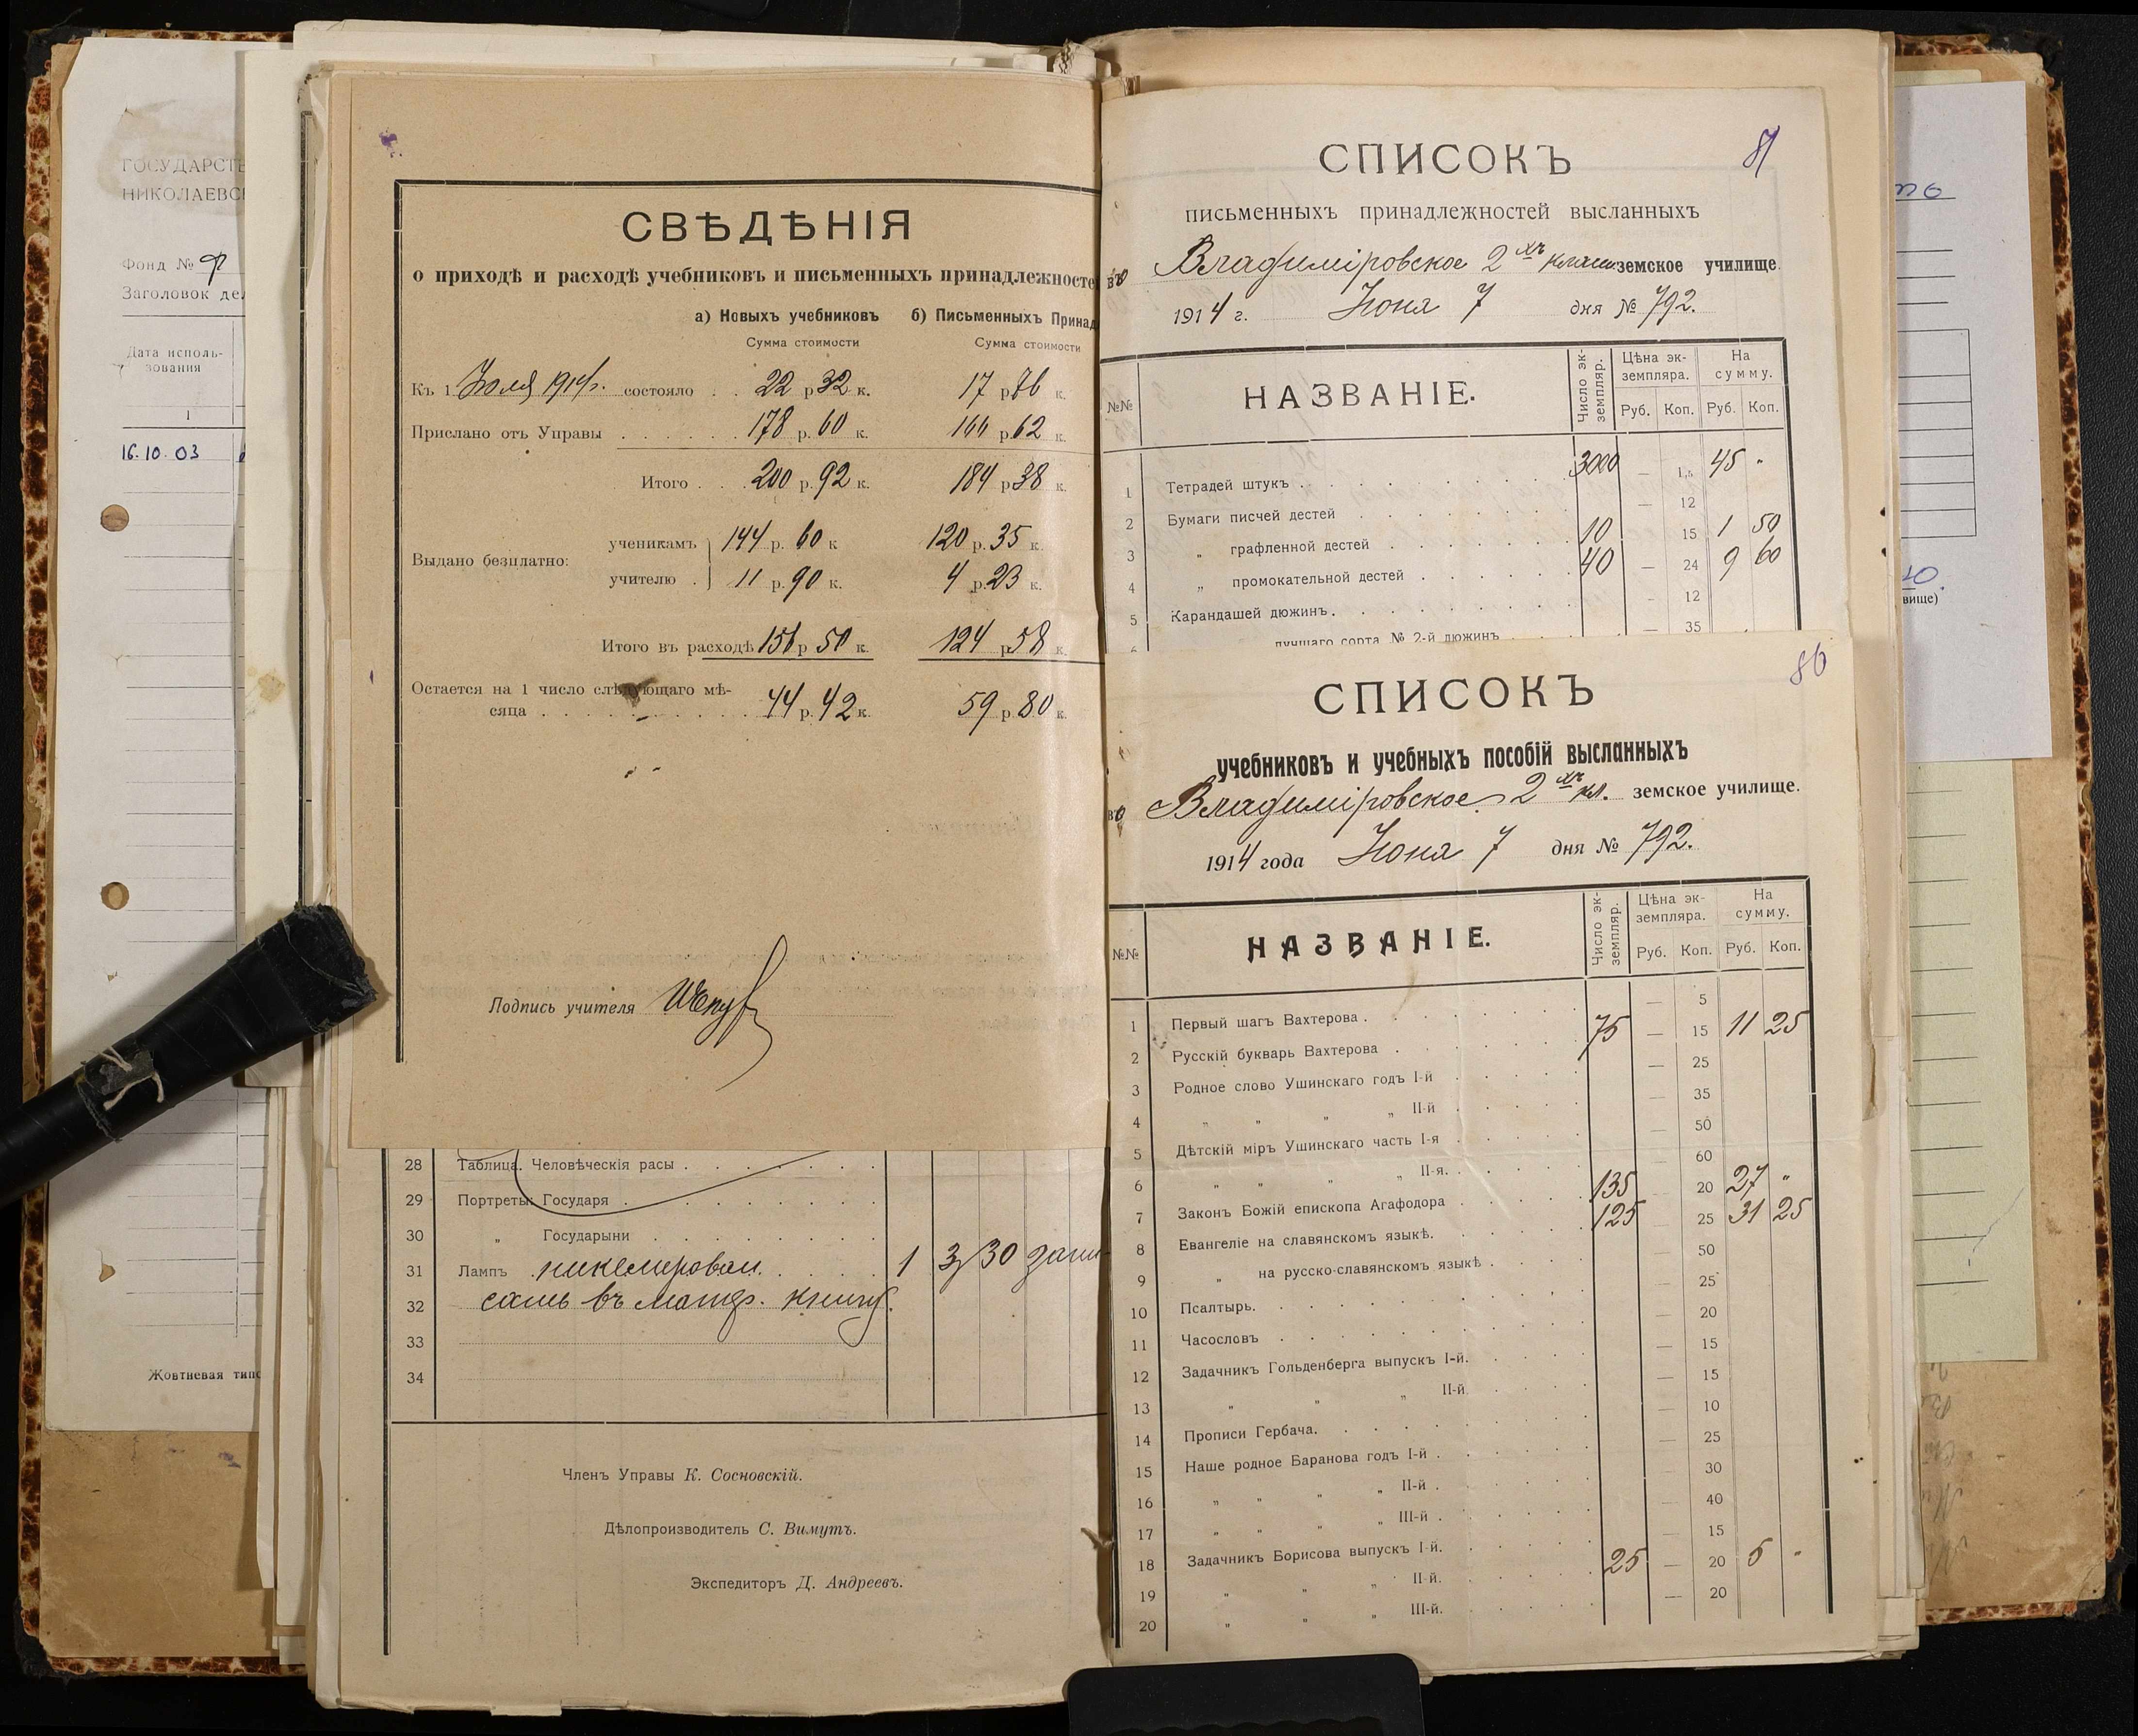 ГОСУДАРСТВ
НИКОЛАЕВС
Фонд №
Заголовок дел
Дата исполь-
зования
1
16.10.03
Жовтневая типо
СВѢДѢНІЯ
о приходѣ и расходѣ учебниковъ и письменныхъ принадлежносте
а) Новыхъ учебниковъ б) Письменныхъ Принад
Сумма стоимости Сумма стоимости
Къ 1 Юля 1914г. состояло . . 22 р 32 к. 17 р 76 к.
Прислано отъ Управы . . . . . . 178 р. 60 к. 166 р. 62 к.
Итого . . . 200 р. 92 к. 184 р 38 к.
ученикамъ 144 р. 60 к 120 р. 35 к.
Выдано безплатно:
учителю . 11 р. 90 к. 4 р. 23 к.
Итого въ расходѣ 156 р 50 к. 124 р 58 к.
Остается на 1 число слѣдующаго мѣ-
сяца . . . . . . . . . . 44 р. 42 к. 59 р. 80 к.
Подпись учителя
28 Таблица. Человѣческія расы . . . . . .
29 Портреты: Государя . . . . . . .
30 „ Государыни . . . . . . .
31 Лампъ никелирован. . . . . 1 3 30 запи-
32 сать въ матер. книгу.
33
34
Членъ Управы К. Сосновскій.
Дѣлопроизводитель С. Вимутъ.
Экспедиторъ Д. Андреевъ.
87
СПИСОКЪ
письменныхъ принадлежностей высланныхъ
во Владиміровское 2хъ класн. земское училище.
1914 г. Іюня 7 дня № 792.
№№ НАЗВАНІЕ. Число эк-земпляр. Цѣна эк-земпляра. На сумму.
Руб. Коп. Руб. Коп.
1 Тетрадей штукъ . . . . . . . . . 3000 — 1,5 45 „
2 Бумаги писчей дестей . . . . . . . — 12
3 „ графленной дестей . . . . . . 10 15 1 50
4 „ промокательной дестей . . . . . 40 — 24 9 60
5 Карандашей дюжинъ . . . . . . . . — 12
6 лучшаго сорта № 2-й дюжинъ . . . — 35
86
СПИСОКЪ
учебниковъ и учебныхъ пособій высланныхъ
во Владиміровское 2хъ кл. земское училище.
1914 года Іюня 7 дня № 792.
№№ НАЗВАНІЕ. Число эк-земпляр. Цѣна эк-земпляра. На сумму.
Руб. Коп. Руб. Коп.
1 Первый шагъ Вахтерова . . . . . . . — 5
2 Русскій букварь Вахтерова . . . . . . 75 — 15 11 25
3 Родное слово Ушинскаго годъ I-й . . . . — 25
4 „ „ „ „ II-й . . . . — 35
5 Дѣтскій міръ Ушинскаго часть I-я . . . . — 50
6 „ „ „ „ II-я. . . . . — 60
7 Законъ Божій епископа Агафодора . . . . 135 20 27 „
8 Евангеліе на славянскомъ языкѣ. . . . . 125 25 31 25
9 „ на русско-славянскомъ языкѣ . . . — 50
10 Псалтырь. . . . . . . . . . . — 25
11 Часословъ . . . . . . . . . . — 20
12 Задачникъ Гольденберга выпускъ I-й. . . . — 15
13 „ „ „ II-й. . . . — 15
14 Прописи Гербача. . . . . . . . . — 10
15 Наше родное Баранова годъ I-й . . . . . — 25
16 „ „ „ „ II-й . . . . . — 30
17 „ „ „ „ III-й . . . . . — 40
18 Задачникъ Борисова выпускъ I-й. . . . . — 15
19 „ „ „ II-й. . . . . 25 — 20 5 „
20 „ „ „ III-й. . . . . — 20
вище)